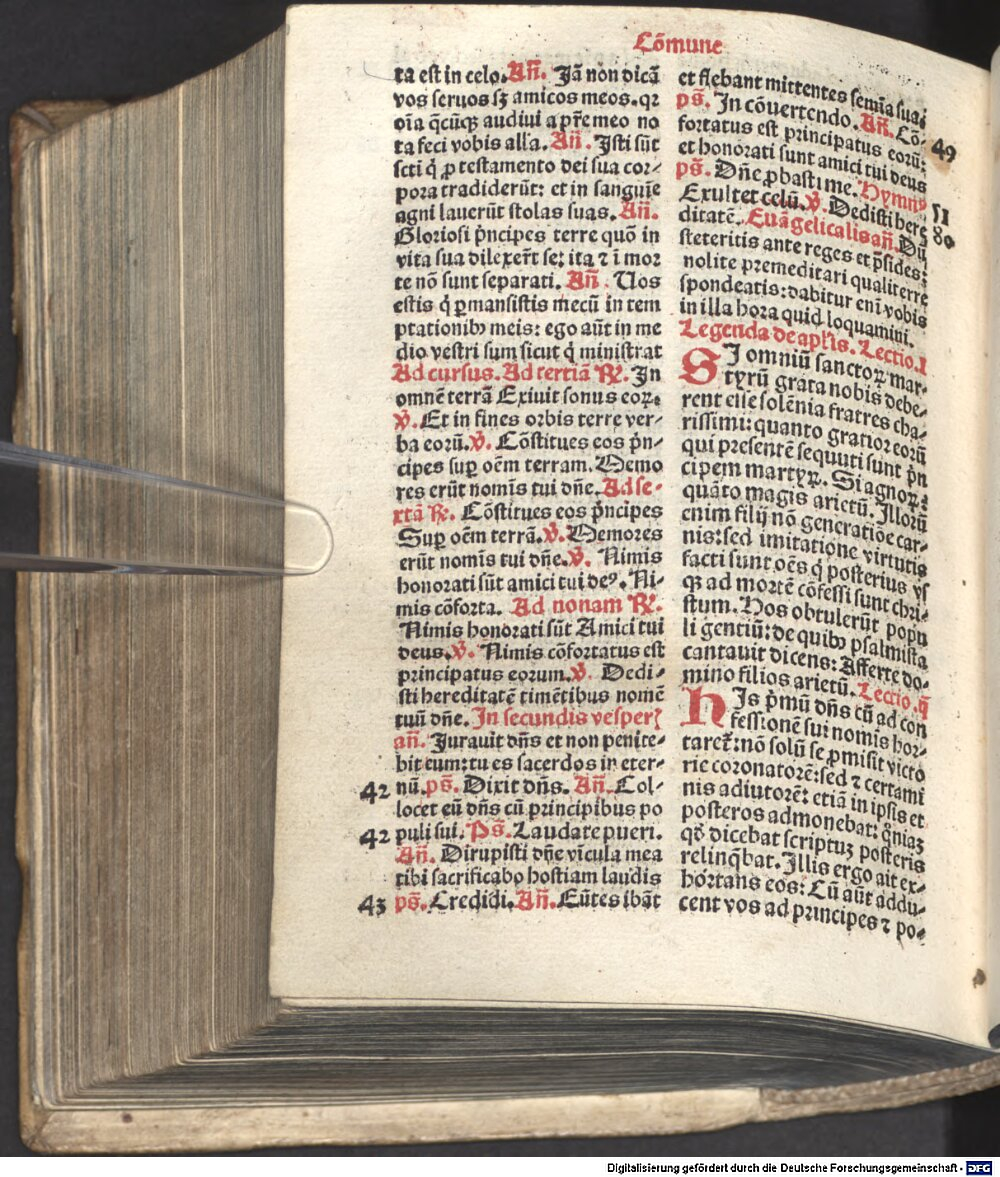 Cōmune
ta est in celo. Añ. Jā non dicā
vos seruos sꝫ amicos meos. qꝛ
oīa q̄cūqꝫ audiui a pr̄e meo no
ta feci vobis alľa. Añ. Isti sūt
scti q̇ ꝑ testamento dei sua cor⸗
pora tradiderūt: et in sanguīe
agni lauerūt stolas suas. Añ.
Gloriosi p̄ncipes terre quō in
vita sua dilexer̄t se: ita ⁊ ī mor
te nō sunt separati. Añ. Uos
estis q̇ ꝑmansistis mecū in tem
ptationibꝰ meis: ego aūt in me
dio vestri sum sicut q̇ ministrat
Ad cursus. Ad tertiā R̷. In
omnē terrā Exiuit sonus eoꝝ.
V̇. Et in fines orbis terre ver⸗
ba eorū. V̇. Cōstitues eos p̄n⸗
cipes suꝑ oēm terram. Memo
res erūt nomīs tui dn̄e. Ad se⸗
xtā R̷. Cōstitues eos p̄ncipes
Suꝑ oēm terrā. V̇. Memores
erūt nomīs tui dn̄e. V̇. Nimis
honorati sūt amici tui deꝰ. Ni⸗
mis cōforta. Ad nonam R̷.
Nimis honorati sūt Amici tui
deus. V̇. Nimis cōfortatus est
principatus eorum. V̇. Dedi⸗
sti hereditatē timētibus nomē
tuū dn̄e. In secundis vesperꝭ
añ. Jurauit dn̄s et non penite⸗
bit eum: tu es sacerdos in eter⸗
42 nū. pš. Dixit dn̄s. Añ. Col⸗
locet eū dn̄s cū principibus po
42 puli sui. Pš. Laudate pueri.
Añ. Dirupisti dn̄e vīcula mea
tibi sacrificabo hostiam laudis
43 pš. Credidi. Añ. Eūtes ibāt
et flebant mittentes semīa sua:
pš. In cōuertendo. Añ. Cō⸗ 49
fortatus est principatus eorū:
et honorati sunt amici tui deus
pš. Dn̄e ꝓbasti me. Hymnꝰ
Exultet celū. V̇. Dedisti here 51
ditatē. Euāgelicalis añ. Dū 80
steteritis ante reges et p̄sides:
nolite premeditari qualiter re
spondeatis: dabitur enī vobis
in illa hora quid loquamini.
Legenda de apľis. Lectio. I
SI omniū sanctoꝝ mar⸗
tyrū grata nobis debe⸗
rent esse solēnia fratres cha⸗
rissimi: quanto gratior eorū
qui presentē sequuti sunt p̄n
cipem martyꝝ. Si agnoꝝ:
quāto magis arietū. Illorū
enim filij nō generatiōe car⸗
nis: sed imitatione virtutis
facti sunt oēs q̇ posterius vs
qꝫ ad mortē cōfessi sunt chri⸗
stum. Hos obtulerūt popu
li gentiū: de quibꝰ psalmista
cantauit dicens: Afferte do⸗
mino filios arietū. Lectio. ij
HIs p̄mū dn̄s cū ad con
fessionē sui nomis hor⸗
taret᷑: nō solū se ꝓmisit victo
rie coronatorē: sed ⁊ certami
nis adiutorē: etiā in ipsis et
posteros admonebat: qm̄iaꝫ
qd̄ dicebat scriptuꝫ posteris
relinq̄bat. Illis ergo ait ex⸗
hortans eos: Cū aūt addu⸗
cent vos ad principes ⁊ po⸗
Digitalisierung gefördert durch die Deutsche Forschungsgemeinschaft - DFG